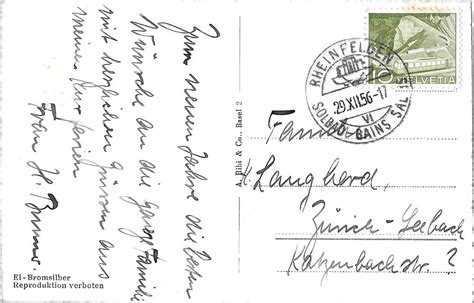 Zum neuen Jahre die besten
Wünsche an die ganze Familie
mit herzlichen Grüssen aus
meinen Kurferien
Frau H. Brunner.
El-Bromsilber
Reproduktion verboten
A. Bibi & Co., Basel 2
HELVETIA
10
RHEINFELDEN
29.XII.56-17
VI
SOLBAD-BAINS SAL
Fam
Langhard
Zürich-Seebach
Katzenbachstr. ?